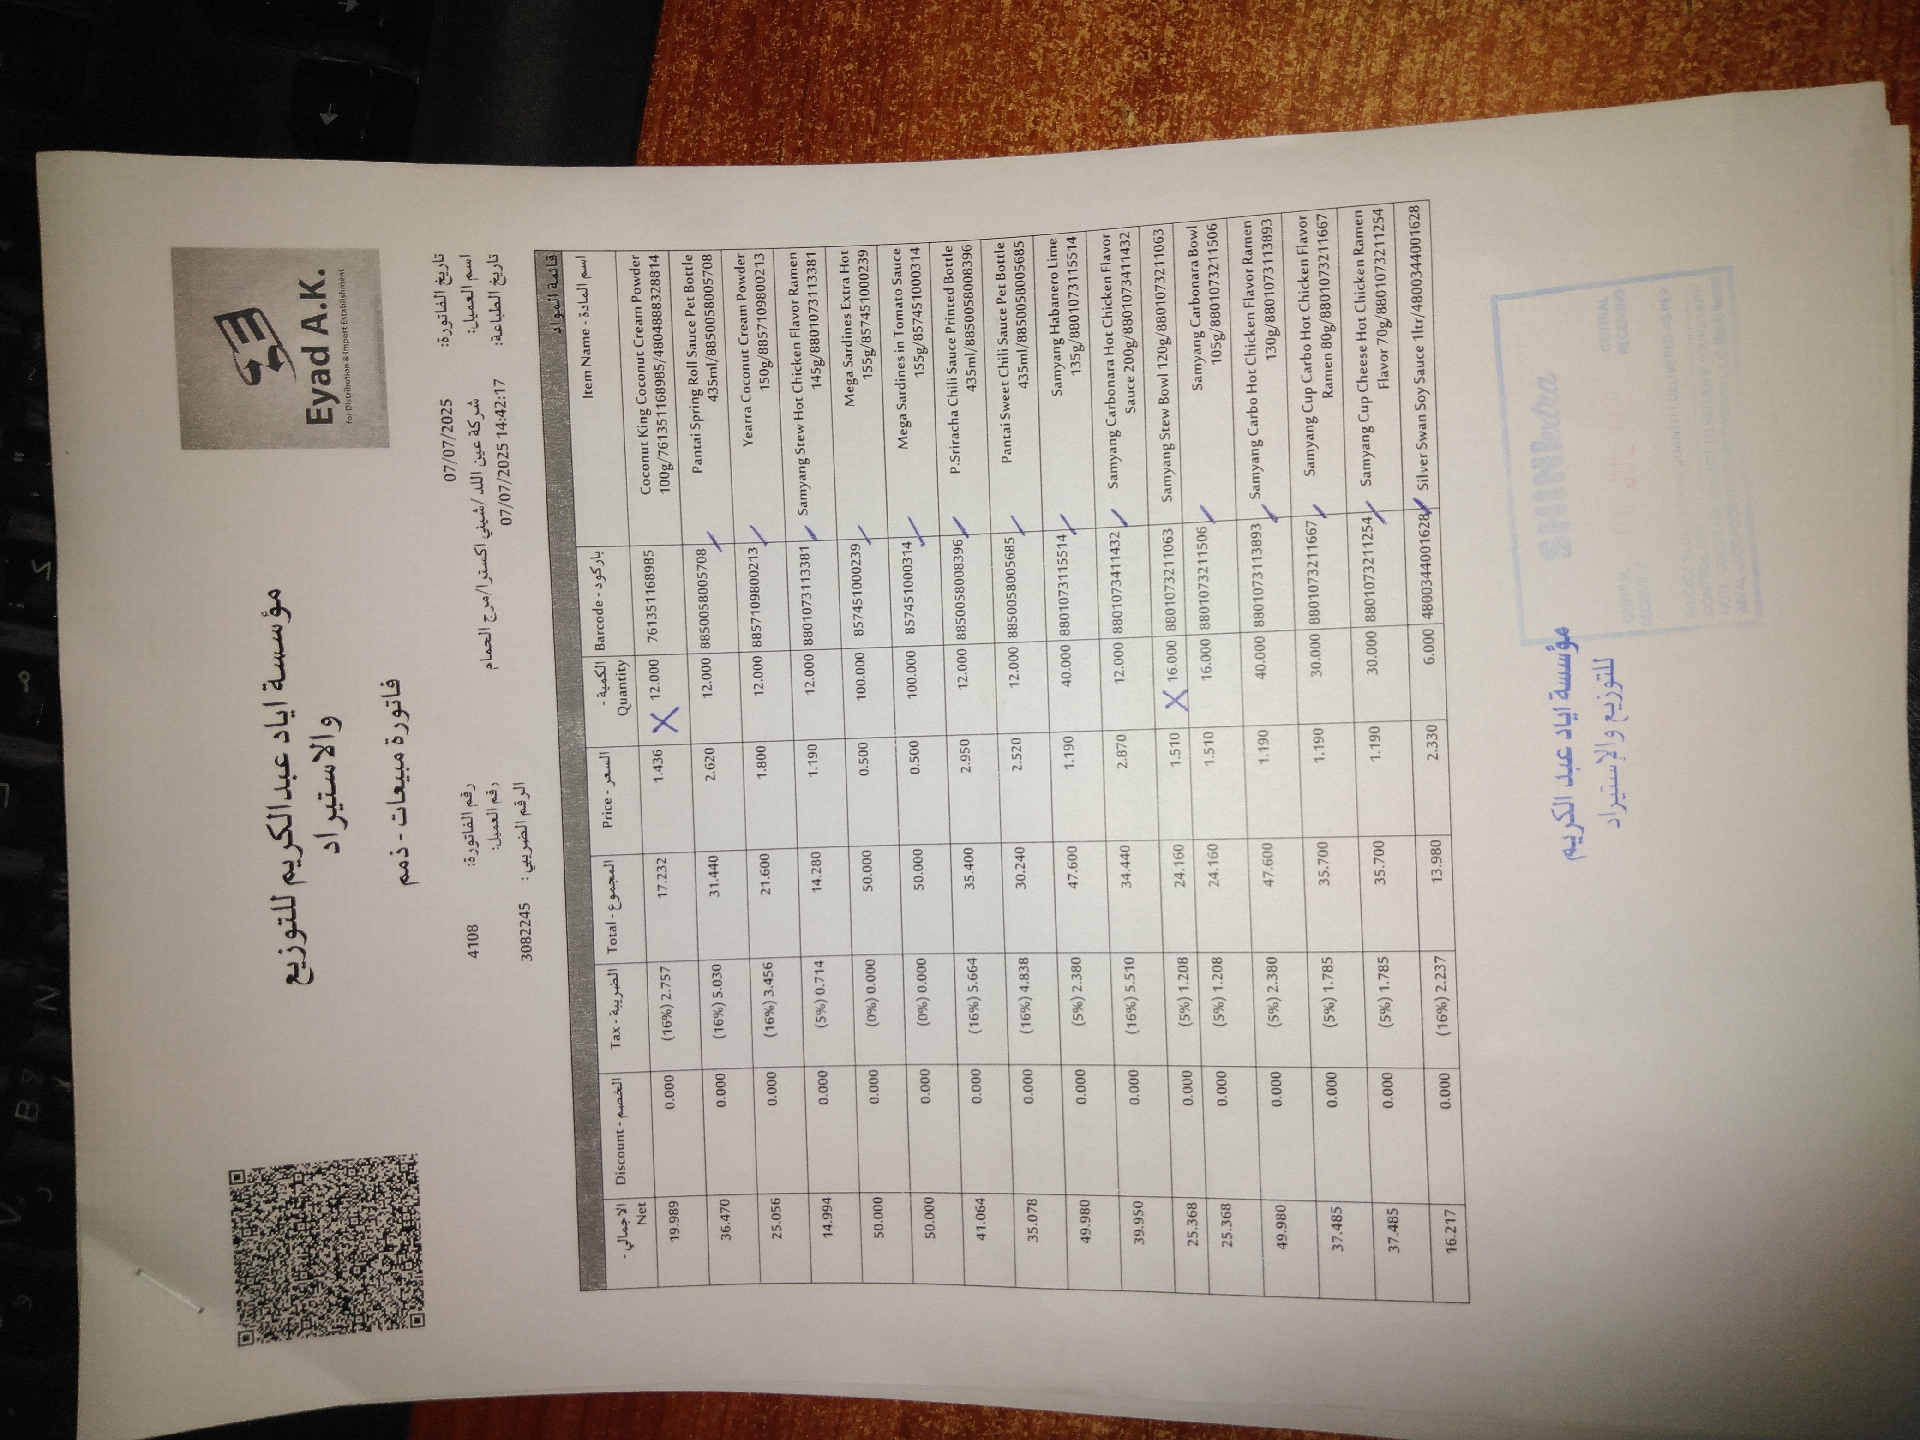 Eyad A.K.
for Distribution & Import Establishment
مؤسسة اياد عبدالكريم للتوزيع
والاستيراد
فاتورة مبيعات - ذمم
تاريخ الفاتورة: 07/07/2025
رقم الفاتورة: 4108
اسم العميل: شركة عين اللد /شيني اكسترا/مرج الحمام
رقم العميل:
تاريخ الطباعة: 07/07/2025 14:42:17
الرقم الضريبي : 3082245
قائمة المواد
الاجمالي - Net | Discount - الخصم | Tax - الضريبة | Total - المجموع | Price - السعر | الكمية - Quantity | Barcode - باركود | Item Name - اسم المادة
19.989 0.000 (16%) 2.757 17.232 1.436 X 12.000 761351168985 Coconut King Coconut Cream Powder
100g/761351168985/4804888328814
36.470 0.000 (16%) 5.030 31.440 2.620 12.000 8850058005708 Pantai Spring Roll Sauce Pet Bottle
435ml/8850058005708
25.056 0.000 (16%) 3.456 21.600 1.800 12.000 8857109800213 Yearra Coconut Cream Powder
150g/8857109800213
14.994 0.000 (5%) 0.714 14.280 1.190 12.000 8801073113381 Samyang Stew Hot Chicken Flavor Ramen
145g/8801073113381
50.000 0.000 (0%) 0.000 50.000 0.500 100.000 857451000239 Mega Sardines Extra Hot
155g/857451000239
50.000 0.000 (0%) 0.000 50.000 0.500 100.000 857451000314 Mega Sardines in Tomato Sauce
155g/857451000314
41.064 0.000 (16%) 5.664 35.400 2.950 12.000 8850058008396 P.Sriracha Chili Sauce Printed Bottle
435ml/8850058008396
35.078 0.000 (16%) 4.838 30.240 2.520 12.000 8850058005685 Pantai Sweet Chili Sauce Pet Bottle
435ml/8850058005685
49.980 0.000 (5%) 2.380 47.600 1.190 40.000 8801073115514 Samyang Habanero Lime
135g/8801073115514
39.950 0.000 (16%) 5.510 34.440 2.870 12.000 8801073411432 Samyang Carbonara Hot Chicken Flavor
Sauce 200g/8801073411432
25.368 0.000 (5%) 1.208 24.160 1.510 X 16.000 8801073211063 Samyang Stew Bowl 120g/8801073211063
25.368 0.000 (5%) 1.208 24.160 1.510 16.000 8801073211506 Samyang Carbonara Bowl
105g/8801073211506
49.980 0.000 (5%) 2.380 47.600 1.190 40.000 8801073113893 Samyang Carbo Hot Chicken Flavor Ramen
130g/8801073113893
37.485 0.000 (5%) 1.785 35.700 1.190 30.000 8801073211667 Samyang Cup Carbo Hot Chicken Flavor
Ramen 80g/8801073211667
37.485 0.000 (5%) 1.785 35.700 1.190 30.000 8801073211254 Samyang Cup Cheese Hot Chicken Ramen
Flavor 70g/8801073211254
16.217 0.000 (16%) 2.237 13.980 2.330 6.000 4800344001628 Silver Swan Soy Sauce 1ltr/4800344001628
مؤسسة اياد عبد الكريم
للتوزيع والاستيراد
SHINI extra
CENTRAL
RECEIVING